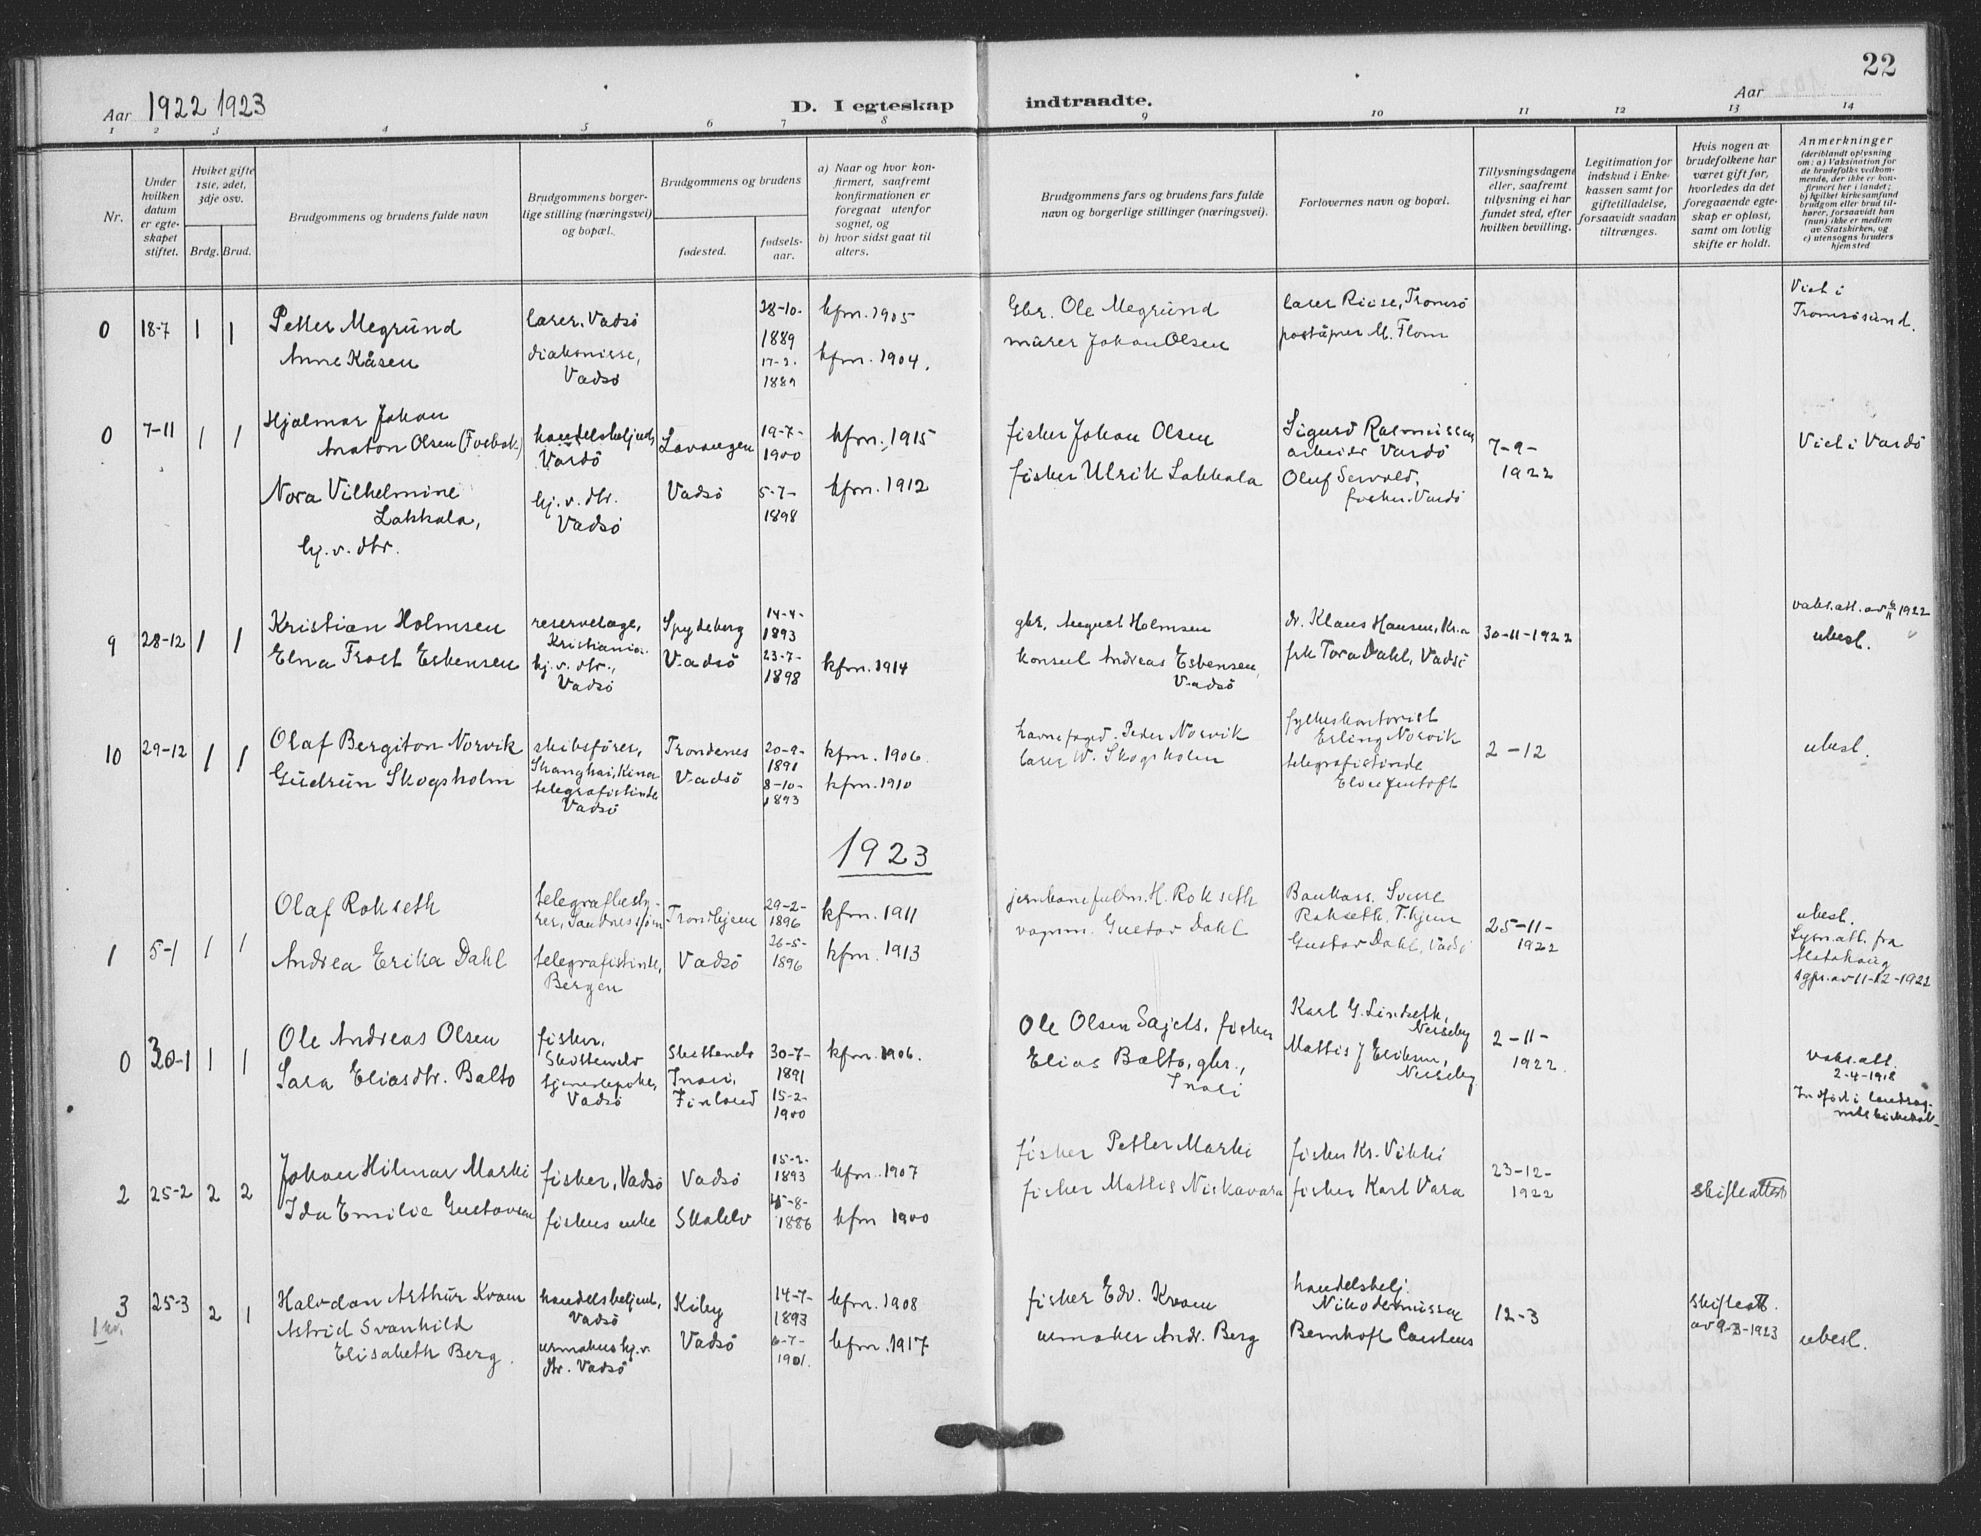 22
Aar 1922 1923
D. I egteskap indtraadte.
Aar
1 2 3 4 5 6 7 8 9 10 11 12 13 14
Nr.
Under hvilken datum er egteskapet stiftet.
Hviket gifte 1ste, 2det, 3dje osv.
Brdg. Brud.
Brudgommens og brudens fulde navn
Brudgommens borgerlige stilling (næringsvei) og bopæl.
Brudgommens og brudens
fødested.
fødselsaar.
a) Naar og hvor konfirmert, saafremt konfirmationen er foregaat utenfor sognet, og
b) hvor sidst gaat til alters.
Brudgommens fars og brudens fars fulde navn og borgerlige stillinger (næringsvei).
Forlovernes navn og bopæl.
Tillysningsdagene eller, saafremt tillysning ei har fundet sted, efter hvilken bevilling.
Legitimation for indskud i Enkekassen samt for giftetilladelse, forsaavidt saadan tiltrænges.
Hvis nogen av brudefolkene har været gift før, hvorledes da det foregaaende egteskap er opløst, samt om lovlig skifte er holdt.
Anmerkninger
(deriblandt oplysning om: a) Vaksination for de brudefolks vedkommende, der ikke er konfirmert her i landet; b) hvilket kirkesamfund brudgom eller brud tilhører, forsaavidt han (hun) ikke er medlem av Statskirken, og c) utensogns bruders hjemsted
0 18-7 1 1
Petter Megrund
Anne Kåsen
lærer, Vadsö
diakonisse,
Vadsö
28-10-
1889
17-2-
1889
kfm. 1905
kfm. 1904.
Gbr. Ole Megrund
murer Johan Olsen
lærer Riise, Tromsö
poståpner M. Flom
Viet i
Tromsösund.
0 7-11 1 1
Hjalmar Johan
Anton Olsen
Nora Vilhelmine
Lakkala,
hj. v. dtr.
handelsbetjent,
Vardö
hj. v. dtr.
Vadsö
Lavangen
Vadsö
19-7-
1900
5-7-
1898
kfm. 1915
kfm. 1912
fisker Johan Olsen
fisker Ulrik Lakkala
Sigurd Rasmussen
arbeider Vardö
Oluf
fisker. Vardö
7-9-
1922
Viet i Vardö
9 28-12 1 1
Kristian Holmsen
Elna Frost Esbensen
reservelæge,
Kristiania.
hj. v. dtr.,
Vadsö
Spydeberg
Vadsö
14-4-
1893
23-7-
1898
kfm. 1914
gbr. August Holmsen
konsul Andreas Esbensen,
Vadsö
dr. Klaus Hansen, Kr.a
frk Tora Dahl, Vadsö
30-11-1922
vaks.att. av 1922
ubesl.
10 29-12 1 1
Olaf Bergiton Norvik
Gudrun Skogsholm
skibsförer,
Shanghai, Kina
telegrafistinde
Vadsö
Trondenes
Vadsö
20-9-
1891
8-10-
1893
kfm. 1906.
kfm. 1910
havnefoged. Peder Norvik
lærer W. Skogsholm
fylkeskontorist
Erling Norvik
telegrafistinde
2-12
ubesl.
1923
1 5-1 1 1
Olaf Rokseth
Andrea Erika Dahl
telegrafbesty-
rer, Sandnessjöen
telegrafistinde,
Bergen
Trondhjem
Vadsö
29-2-
1896
26-5-
1896
kfm. 1911
kfm. 1913
jernbanefuldm. H. Rokseth
vognm. Gustav Dahl
Bankass. Sverre
Rokseth, T.hjem
Gustav Dahl, Vadsö
25-11-
1922
ubesl.
Lysn.att. fra
Alstahaug
sgpr. av 11-12-1922
0 30-1 1 1
Ole Andreas Olsen
Sara Eliasdtr. Balto
fisker,
tjenestepike,
Vadsö
Inari,
Finland
30-7-
1891
15-2-
1900
kfm. 1906.
Ole Olsen Sajets, fisker
Elias Balto, gbr.,
Inari
Karl G. Lindseth,
Nesseby
Mattis J Eriksen,
Nesseby
2-11-
1922
Vaks.att.
2-4-1918
2 25-2 2 2
Johan Hilmar Marki
Ida Emilie Gustavsen
fisker, Vadsö
fiskers enke
Vadsö
Skallelv
15-2-
1893
15-8-
1886
kfm. 1907
kfm 1900
fisker Petter Marki
fisker Mattis Niskavara
fisker Kr. Vikki
fisker Karl Vara
23-12-
1922
skifteattest
3 25-3 2 1
Halvdan Arthur Kvam
Astrid Svanhild
Elisabeth Berg.
handelsbetjent,
Vadsö
urmakers hj. v.
dtr. Vadsö
Kiby
Vadsö
14-7-
1893
6-7-
1901.
kfm. 1908
kfm. 1917
fisker Edv. Kvam
urmaker Andr. Berg
handelsbetj.
Nikodemussen
Bernhoft Carstens
12-3
skifteatt.
av 9-3-1923
ubesl.